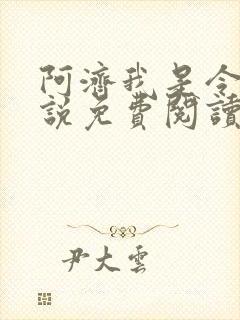 阿濟我是令
說免費閱讀
尹大雲